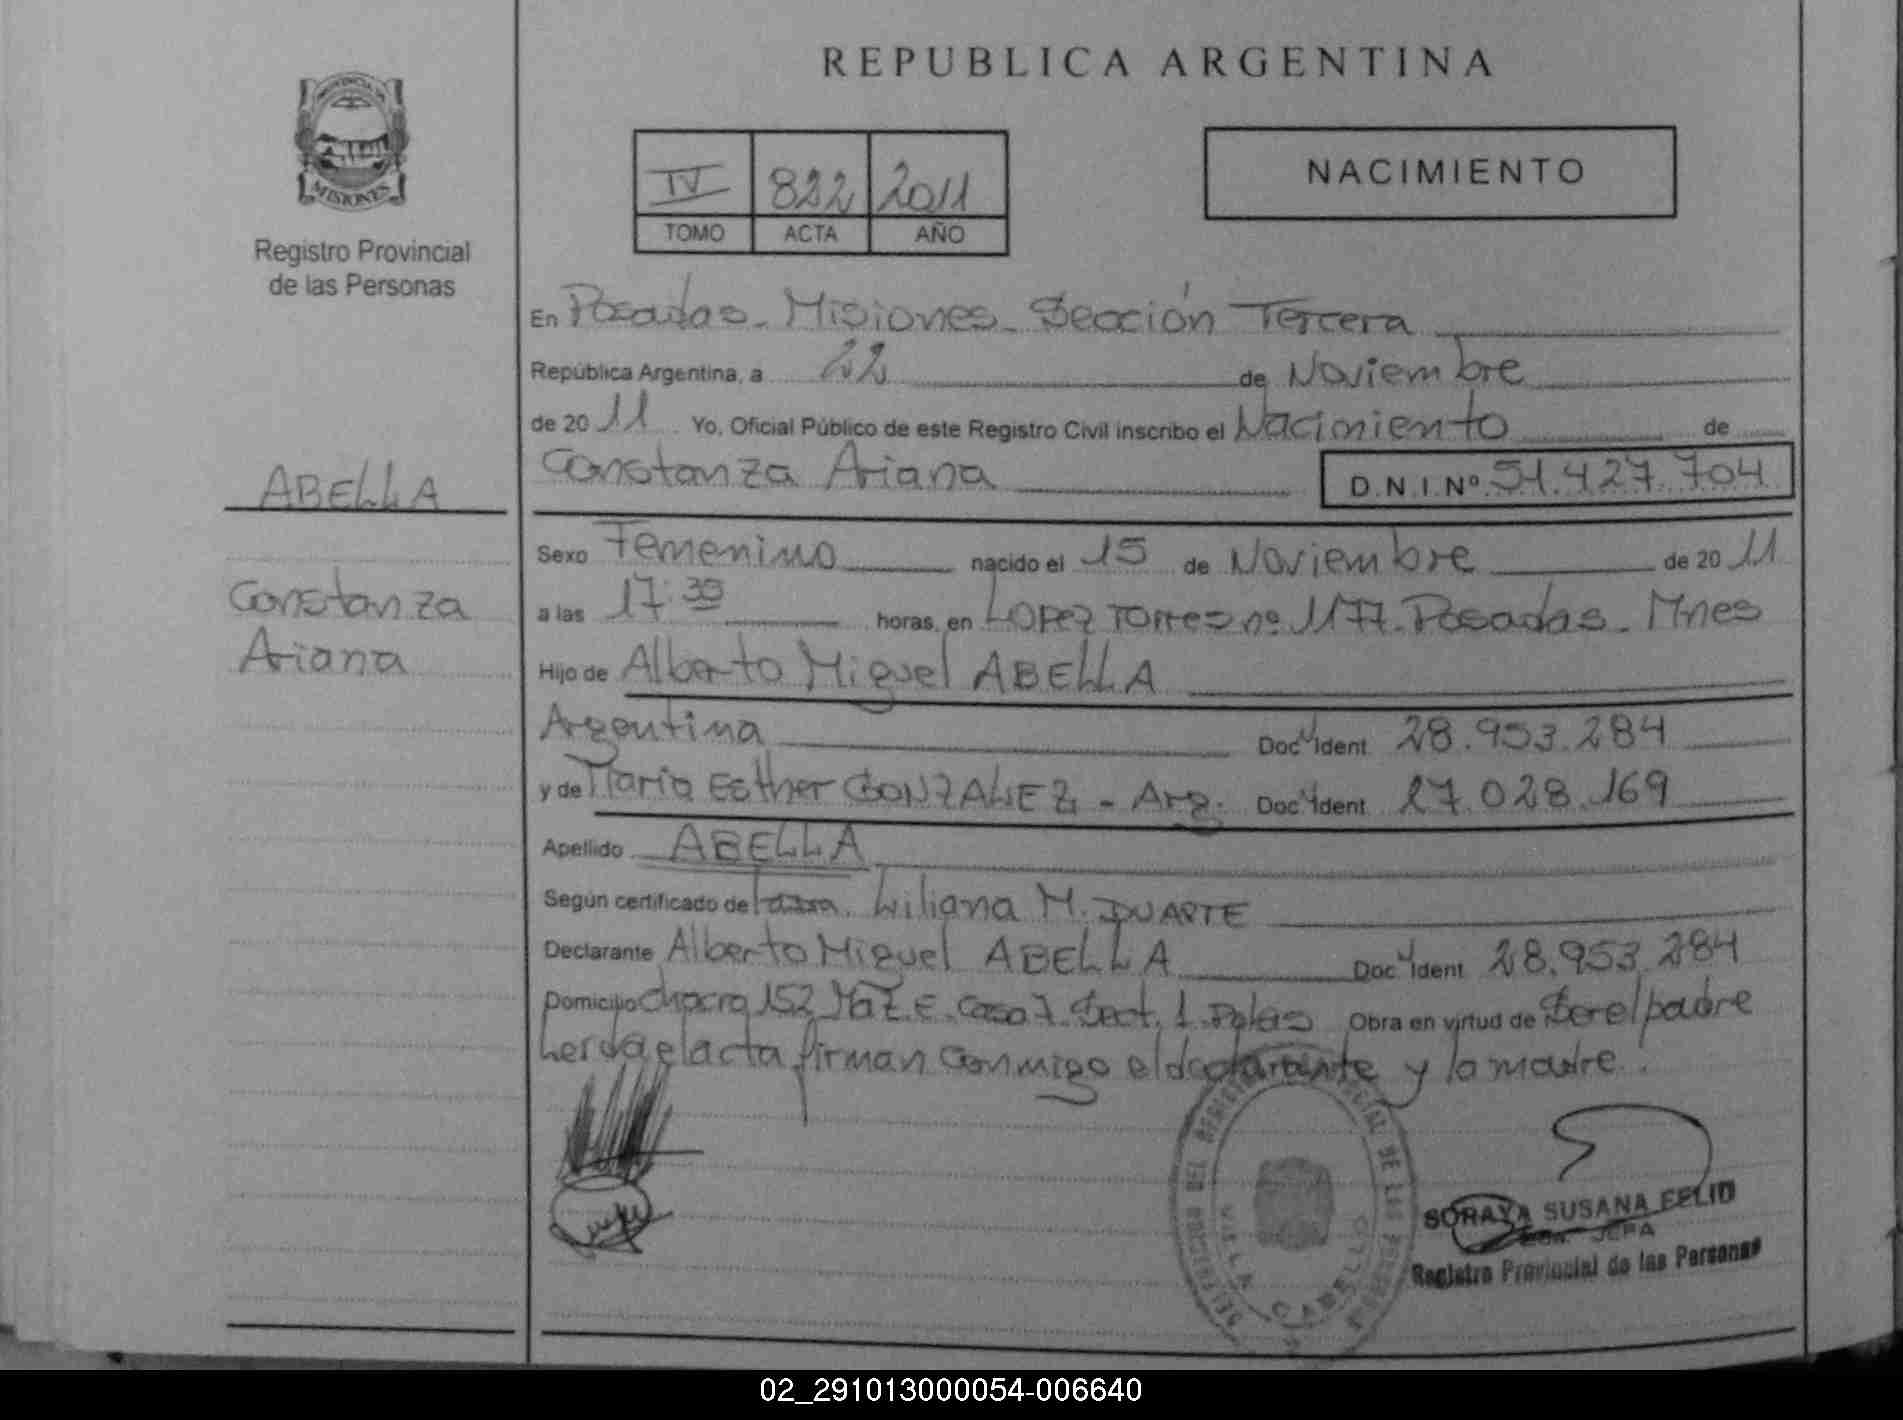 REPUBLICA ARGENTINA
PROVINCIA DE
MISIONES
Registro Provincial
de las Personas
IV 822 2011
TOMO ACTA AÑO
NACIMIENTO
En Posadas - Misiones - Sección Tercera
República Argentina, a 22 de Noviembre
de 2011 Yo, Oficial Público de este Registro Civil inscribo el Nacimiento de
Constanza Ariana D.N.I.Nº 51.427.704
ABELLA
Constanza
Ariana
Sexo Femenino nacido el 15 de Noviembre de 2011
a las 17:39 horas, en LOPEZ TORRES nº 1177 - Posadas - Mnes
Hijo de Alberto Miguel ABELLA
Argentina Doc. Ident. 28.953.284
y de Maria Esther GONZALEZ - Arg. Doc. Ident. 27.028.169
Apellido ABELLA
Según certificado de Liliana M. DUARTE
Declarante Alberto Miguel ABELLA Doc. Ident. 28.953.284
Domicilio chacra 152 Mz E. Casa 7. Sect. 1. Obra en virtud de Ser el padre
Leída el acta firman conmigo el declarante y la madre.
VILLA CABELLO
SORAYA SUSANA FELIP
JEFA
Registro Provincial de las Personas
02_291013000054-006640